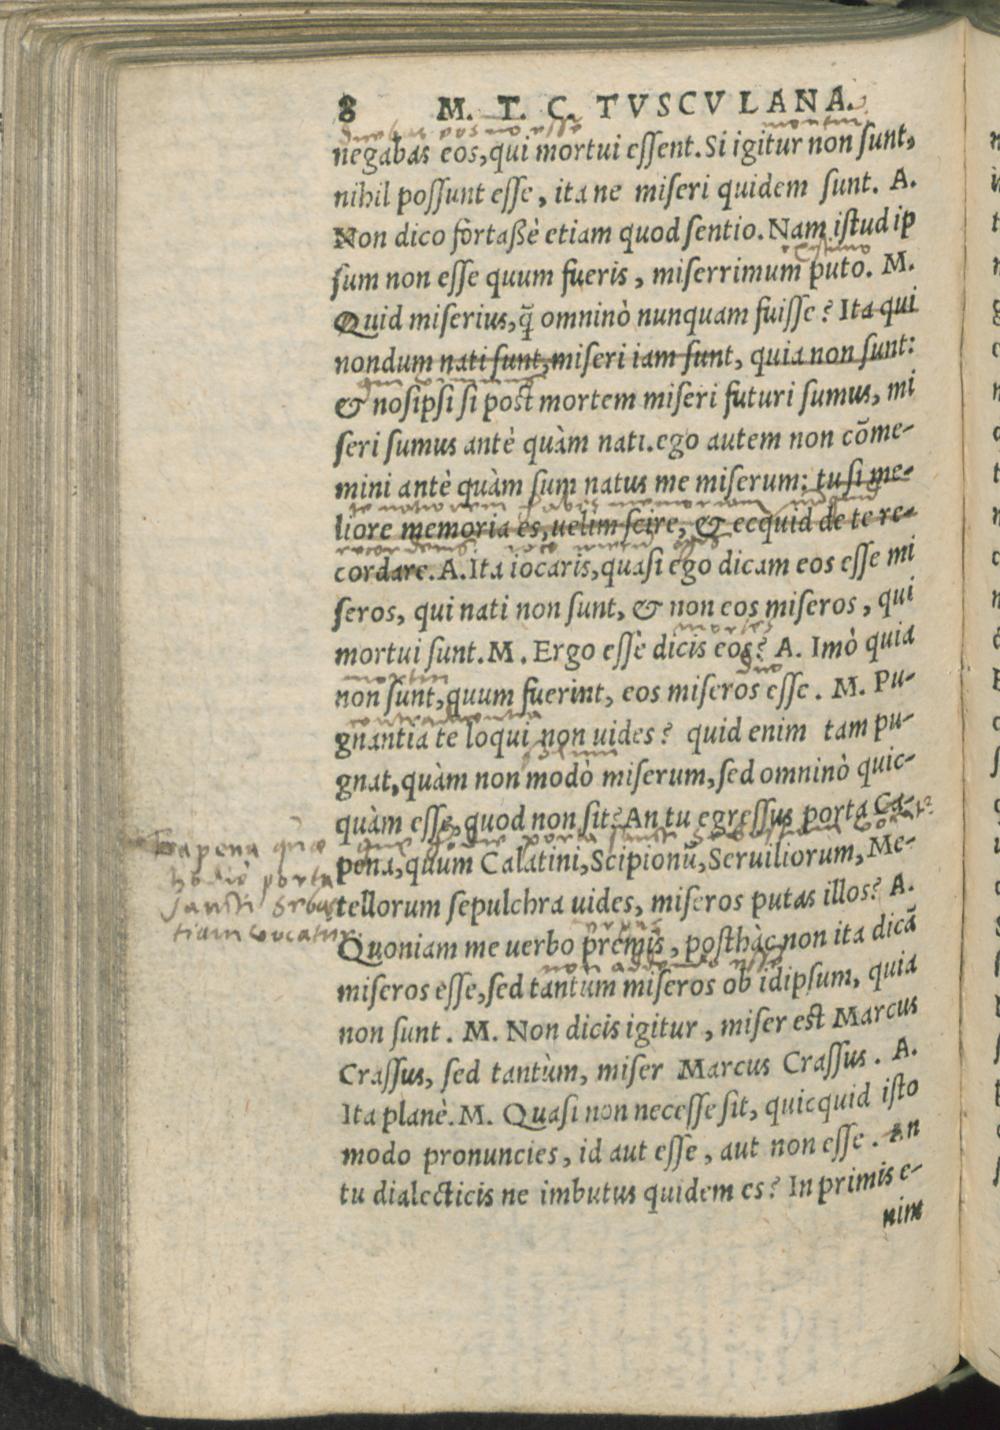 8 M. T. C. TVSCVLANA.
mortui
negabas eos, qui mortui essent. Si igitur non sunt,
nihil possunt esse, ita ne miseri quidem sunt. A.
Non dico fortaßè etiam quod sentio. Nam istud ip
existimo
sum non esse quum fueris, miserrimum puto. M.
Quid miserius, q̃ omninò nunquam fuisse? Ita qui
nondum nati sunt, miseri iam sunt, quia non sunt:
& nosipsi si post mortem miseri futuri sumus, mi
seri sumus antè quàm nati. ego autem non cōme-
mini antè quàm sum natus me miserum: tu si me-
liore memoria es, uelim scire, & ecquid de te re-
cordare. A. Ita iocaris, quasi ego dicam eos esse mi
seros, qui nati non sunt, & non eos miseros, qui
mortui sunt. M. Ergo essè dicis eos? A. Imò quia
non sunt, quum fuerint, eos miseros esse. M. Pu-
gnantia te loqui non uides? quid enim tam pu-
gnat, quàm non modò miserum, sed omninò quic-
quàm esse, quod non sit? An tu egressus porta Ca-
pena, quum Calatini, Scipionũ, Seruiliorum, Me-
tellorum sepulchra uides, miseros putas illos? A.
Quoniam me uerbo premis, posthàc non ita dicã
non addendo esse
miseros esse, sed tantum miseros ob idipsum, quia
non sunt. M. Non dicis igitur, miser est Marcus
Crassus, sed tantùm, miser Marcus Crassus. A.
Ita planè. M. Quasi non necesse sit, quicquid isto
modo pronuncies, id aut esse, aut non esse. An
tu dialecticis ne imbutus quidem es? In primis e-
nim
Capena quæ
hodie porta
sancti Sebas
tiani vocatur